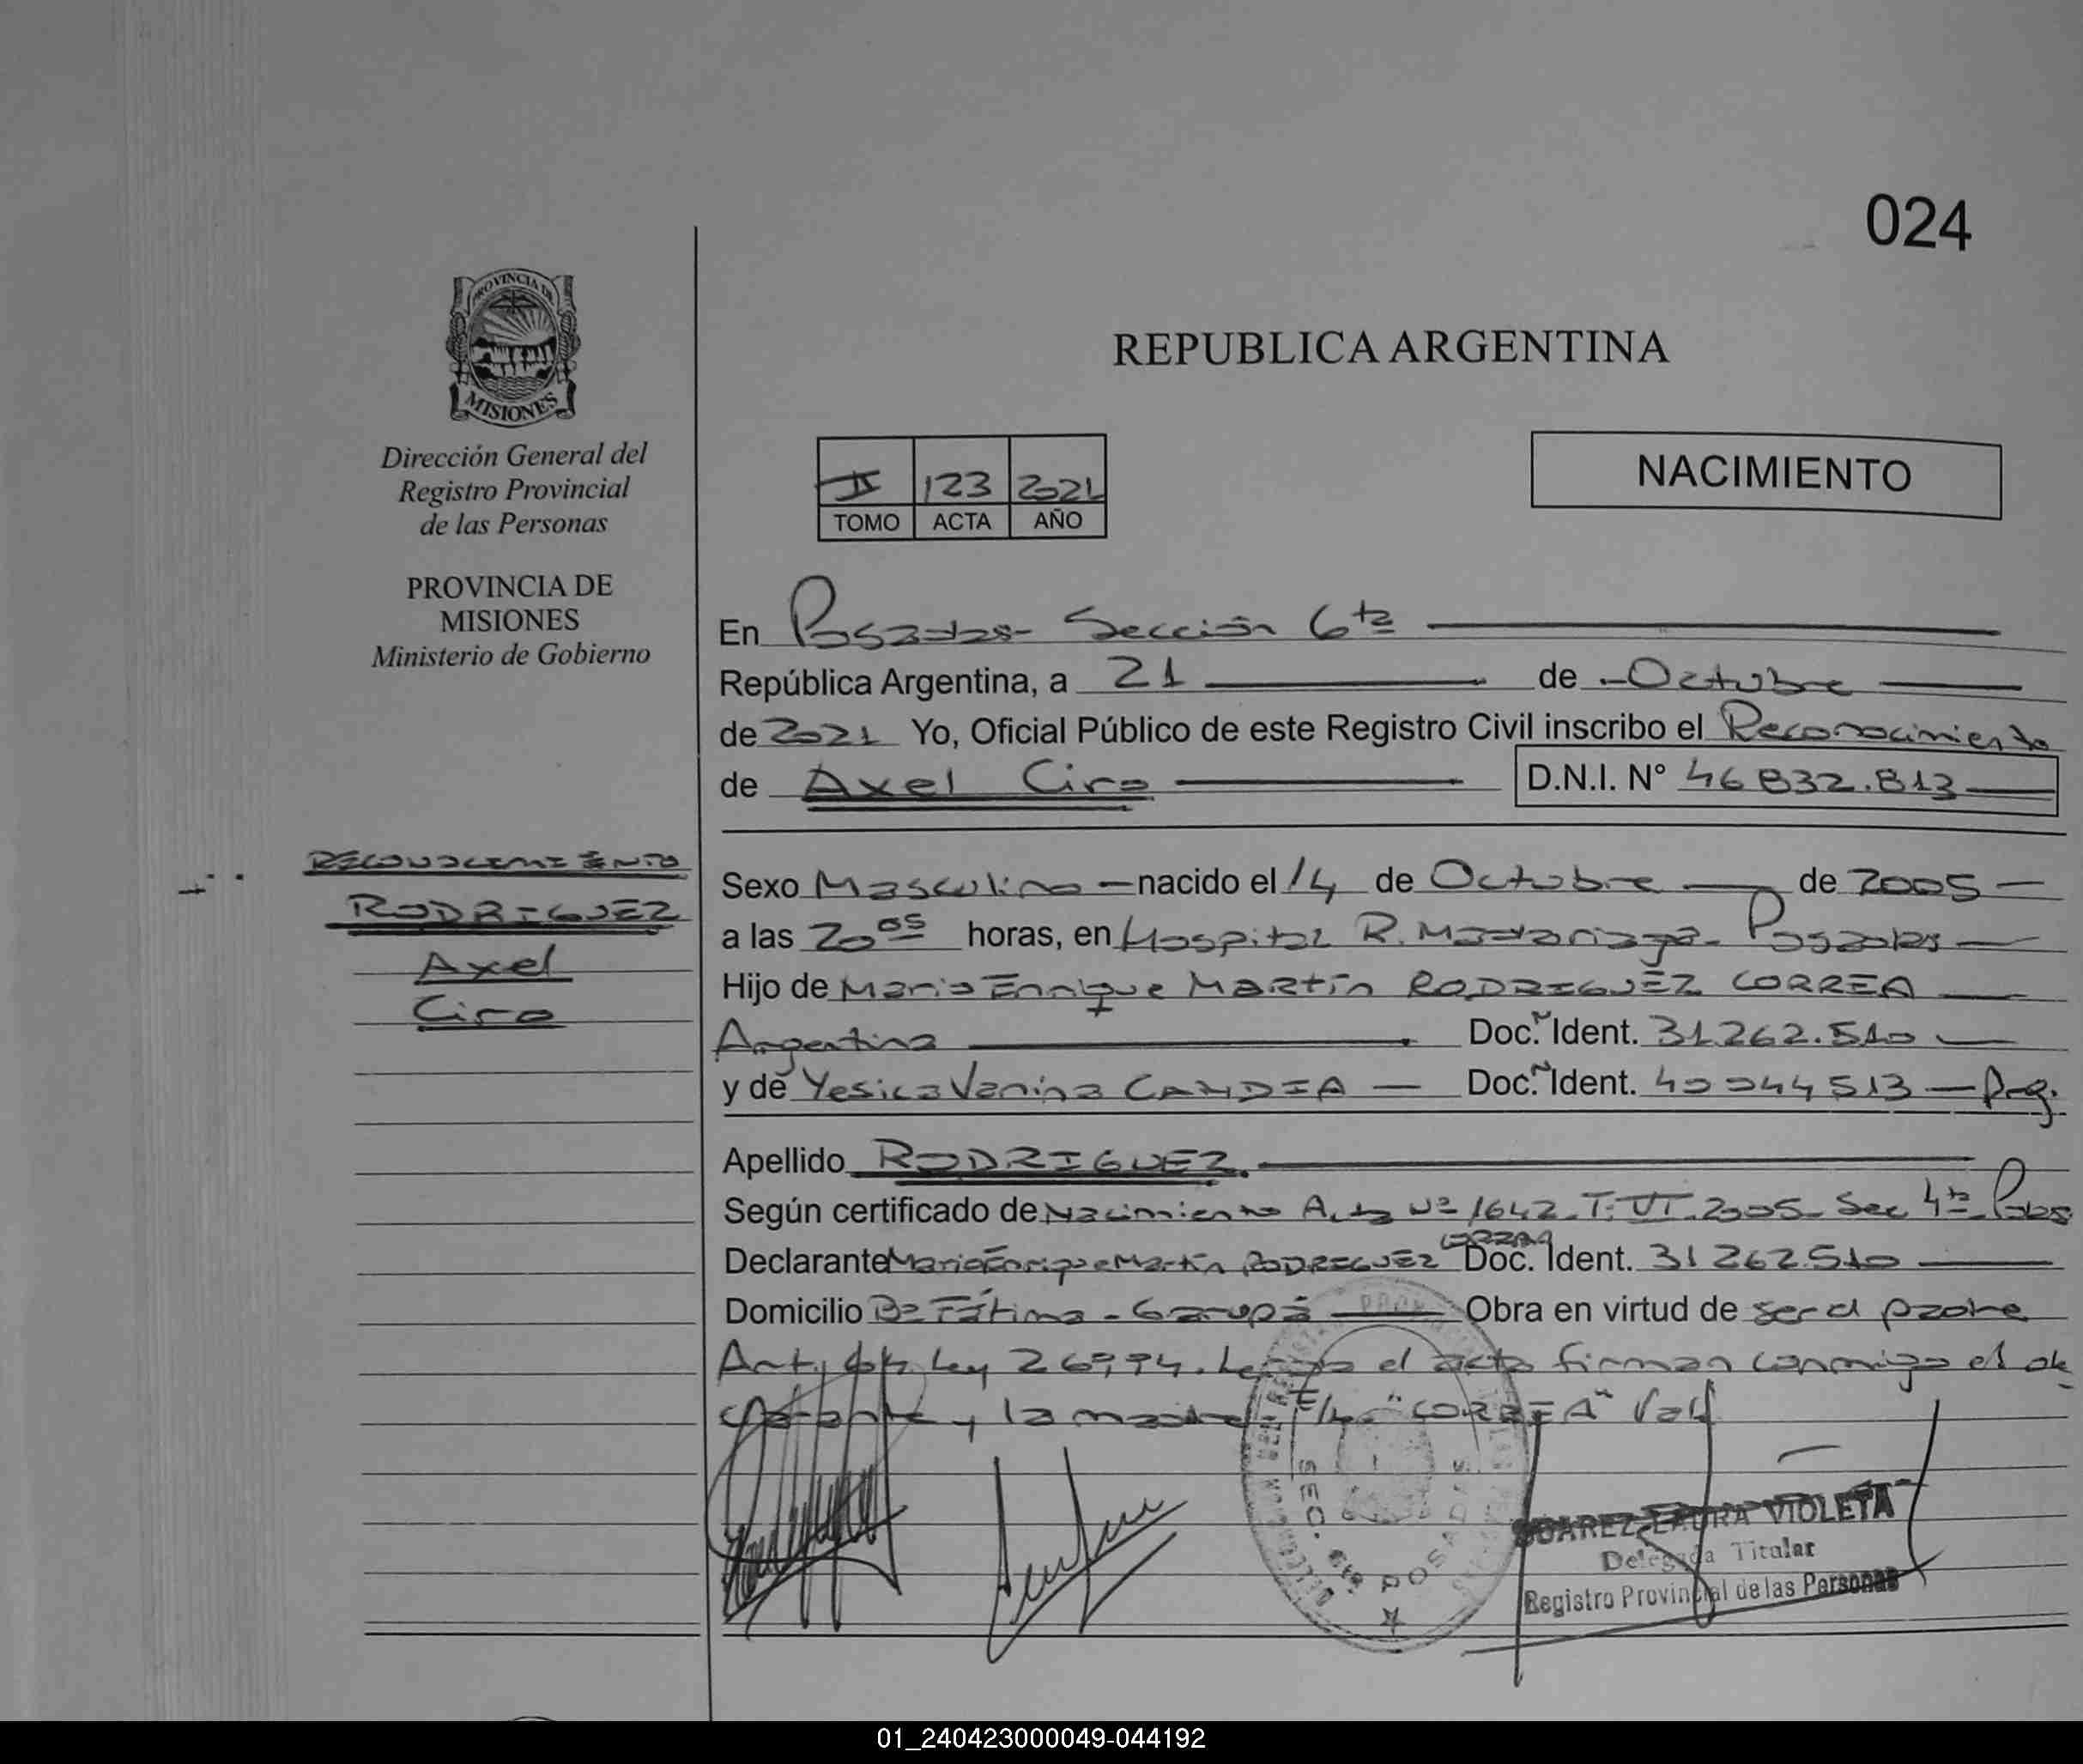 024
PROVINCIA DE
MISIONES
Dirección General del
Registro Provincial
de las Personas
PROVINCIA DE
MISIONES
Ministerio de Gobierno
RECONOCIMIENTO
RODRIGUEZ
Axel
Ciro
REPUBLICA ARGENTINA
II 123 2021
TOMO ACTA AÑO
NACIMIENTO
En Posadas- Sección 6ta
República Argentina, a 21 de Octubre
de 2021 Yo, Oficial Público de este Registro Civil inscribo el Reconocimiento
de Axel Ciro D.N.I. N° 46832.813
Sexo Masculino nacido el 14 de Octubre de 2005
a las 20 05 horas, en Hospital R. Madariaga- Posadas
Hijo de Mario Enrique Martín RODRIGUEZ CORREA
Argentina Doc. Ident. 31.262.510
y de Yesica Vanina CANDIA Doc. Ident. 40 044 513 Arg.
Apellido RODRIGUEZ.
Según certificado de Nacimiento Acta Nº 1642 T. VI. 2005- Sec 4ta Pdas
Declarante Mario Enrique Martín RODRIGUEZ CORREA Doc. Ident. 31 262.510
Domicilio Bº Fátima - Garupá Obra en virtud de ser el padre
Art. Ley 26994. el acta firman conmigo el de
clarante y la madre E/L "CORREA" Vale
SEC. 6ta POSADAS
SUAREZ LAURA VIOLETA
Delegada Titular
Registro Provincial de las Personas
01_240423000049-044192